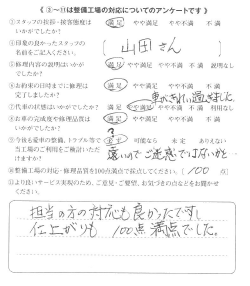 《 ②～⑪は整備工場の対応についてのアンケートです 》
①スタッフの接客・接客態度は
いかがでしたか？
満足 やや満足 やや不満 不満
③印象の良かったスタッフの
名前をご記入ください。
山田さん
満足 やや満足 やや不満 不満
いかがでしたか？
⑤お約束の日時までに修理は
完了しましたか？
満足 やや満足 やや不満 不満
車のきれいで満足でした。
⑥代車の状態はいかがでしたか？
満足 やや満足 やや不満 利用なし
⑧お車の完成度や修理品質は
いかがでしたか？
満足 やや満足 やや不満 不満
⑨今後も愛車の整備、トラブル等で
当工場のご利用をご検討いただ
けますか？
可能なら 未定 ありえない
遠いのでご迷惑でないかと
⑩整備工場の対応・修理品質を100点満点で採点してください。( 100 点)
⑪より良いサービス実現のため、ご意見・ご要望、お気づきの点などをお聞かせ
ください。
担当の方の対応も良かったですし
仕上がりも 100点満点でした。